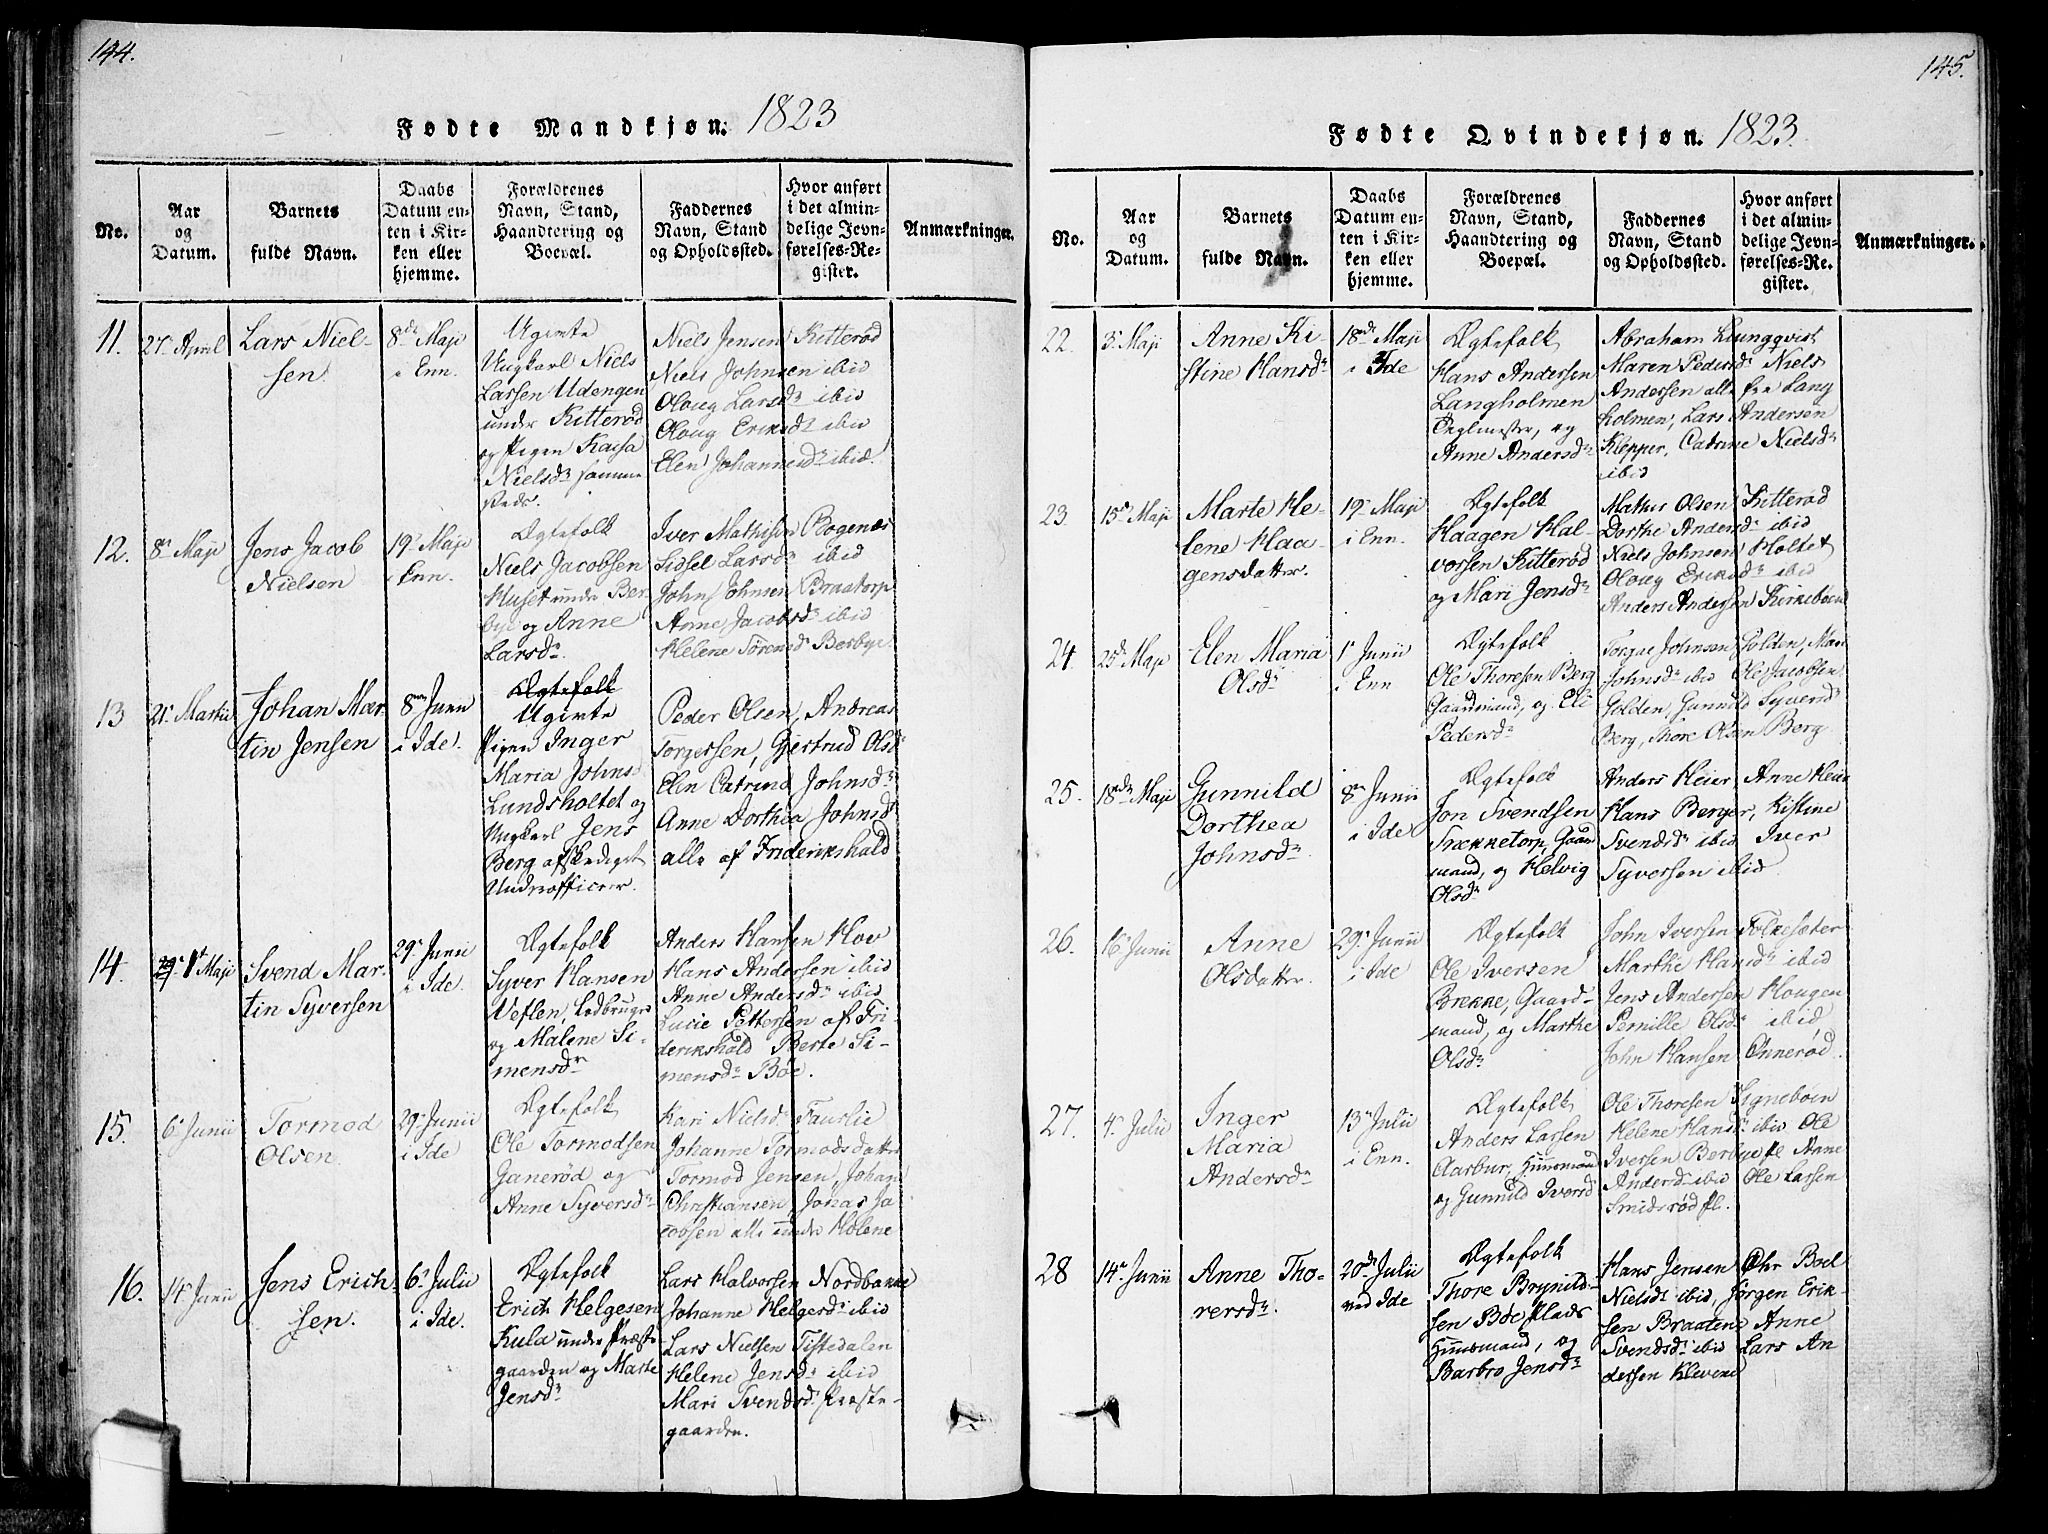 144.
Fødte Mandkjøn. 1823
No.
Aar
og
Datum.
Barnets
fulde Navn.
Daabs
Datum en-
ten i Kir-
ken eller
hjemme.
Forældrenes
Navn, Stand,
Haandtering og
Boepæl.
Faddernes
Navn, Stand
og Opholdssted.
Hvor anført
i det almin-
delige Jevn-
førelses-Re-
gister.
Anmærkninger.
11.
27 April
Lars Niel-
sen
8de Maji
i Enn.
Ugivte
Ungkarl Niels
Larsen Udengen
under Kitterød
og Pigen Kaisa
Nielsdr samme
steds.
Niels Jensen Kitterød
Niels Johnsen ibid
Oloug Larsdr ibid
Oloug Eriksdt ibid
Elen Johannesdr ibid.
12.
8de Maji
Jens Jacob
Nielsen
19 Maji
i Enn.
Ægtefolk
Niels Jacobsen
Huset under Ber-
bye og Anne
Larsdr
Iver Mathisen Bogenæs
Sidsel Larsdr ibid
John Johnsen Braatorp
Anne Jacobsdr ibid
Helene Sørensd Berbye
13
21 Martii
Johan Mar-
tin Jensen
8de Junii
i Ide.
Ægtefolk
Ugivte
Pigen Inger
Maria Johns
Lundsholtet og
Ungkarl Jens
Berg afskediget
Underofficeer.
Peder Olsen, Andreas
Torgersen, Gjertrud Olsd
Elen Catrine Johnsdr
Anne Dorthea Johnsd
alle af Friderikshald
14.
29 1t Maji
Svend Mar-
tin Syversen
29 Junii
i Ide.
Ægtefolk
Syver Hansen
Veflen, Lodbruger
og Malene Si-
mensdr
Anders Hansen Hov
Hans Andersen ibid
Anne Andersdr ibid
Lucie Pettersen af Fri-
derikshald Berte Si-
mensdr Bøe.
15.
6 Junii
Tormod
Olsen
29 Junii
i Ide
Ægtefolk
Ole Tormodsen
Ganerød og
Anne Syversdr
Kari Nielsdr Fauslie
Johanne Tormodsdatter
Tormod Jensen, Johan
Christiansen, Jonas Ja
cobsen alle under Helene
16.
14 Junii
Jens Erich-
sen.
6 Julii
i Ide.
Ægtefolk
Erich Helgesen
Kula under Præste
gaarden og Marte
Jensdr
Lars Halvorsen Nordbakke
Johanne Helgesdr ibid
Lars Nielsen Tistedalen
Helene Jensdr ibid
Mari Svendsdr Præste-
gaarden.
145.
Fødte Qvindekjøn. 1823.
No.
Aar
og
Datum.
Barnets
fulde Navn.
Daabs
Datum en-
ten i Kir-
ken eller
hjemme.
Forældrenes
Navn, Stand,
Haandtering og
Boepæl.
Faddernes
Navn, Stand
og Opholdssted.
Hvor anført
i det almin-
delige Jevn-
førelses-Re-
gister.
Anmærkninger.
22.
3 Maji
Anne Ki-
stine Hansdr
18de Maji
i Ide
Ægtefolk
Hans Andersen
Langholmen
Teglmester, og
Anne Andersdr
Abraham Liungqvist
Maren Pedersdr Niels
Andersen alle fra Lang
holmen, Lars Andersen
Klepper, Catrine Nielsdr
ibid
23.
15de Maji
Marte He-
lene Haa-
gensdatter.
19 Maji
i Enn.
Ægtefolk
Haagen Hal-
vorsen Kitterød
og Mari Jensdr
Mathis Olsen Kitterød
Dorthe Andersdr ibid
Niels Johnsen Holtet
Oloug Eriksdr ibid
Anders Andersen Kirkebøen
24
25de Maji
Elen Maria
Olsdr
1 Junii
i Enn
Ægtefolk
Ole Thoresen Berg
Gaardmand, og Eli
Pedersdr
Torger Johnsen Golden, Mari
Johnsdr ibid Ole Jacobsen
Golden, Gunnild Syversdr
Berg, Thore Olsen Berg
25.
18de Maji
Gunnild
Dorthea
Johnsdr
8de Junii
i Ide
Ægtefolk
Jon Svendsen
Trækketorp, Gaard
mand, og Helvig
Olsdr
Anders Heier, Anne Heier
Hans Berger, Kistine
Svendsdr ibid Iver
Syversen ibid
26.
16 Junii
Anne
Olsdatter.
29 Junii
i Ide
Ægtefolk
Ole Iversen
Brekke, Gaard-
mand, og Marthe
Olsdr
John Iversen Folkesæter
Marthe Hansdr ibid
Jens Andersen Hougen
Pernille Olsdr ibid
John Hansen Ønnerød
27.
4 Julii
Inger
Maria
Andersdr
13 Julii
i Enn.
Ægtefolk
Anders Larsen
Aarbur, Huusmand
og Gunnild Iversd
Ole Thoresen Signebøen
Helene Hansdr ibid Ole
Iversen Berbye pl Anne
Andersdr ibid Ole Larsen
Smidsrød pl.
28
14 Junii
Anne Tho-
rersdr.
20de Julii
ved Ide
Ægtefolk
Thore Brynild-
sen Bøe Plads
Huusmand, og
Barbro Jensdr
Hans Jensen Øhr Boel
Nielsdt ibid, Jørgen Erik-
sen Braaten Anne
Svendsdr ibid Lars An
dersen Klevene